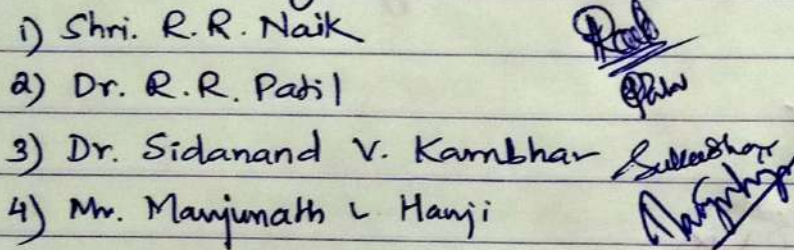 1) Shri. R.R. Naik
2) Dr. R.R. Patil
3) Dr. Sidanand V. Kambhar
4) Mr. Manjunath L Hanji